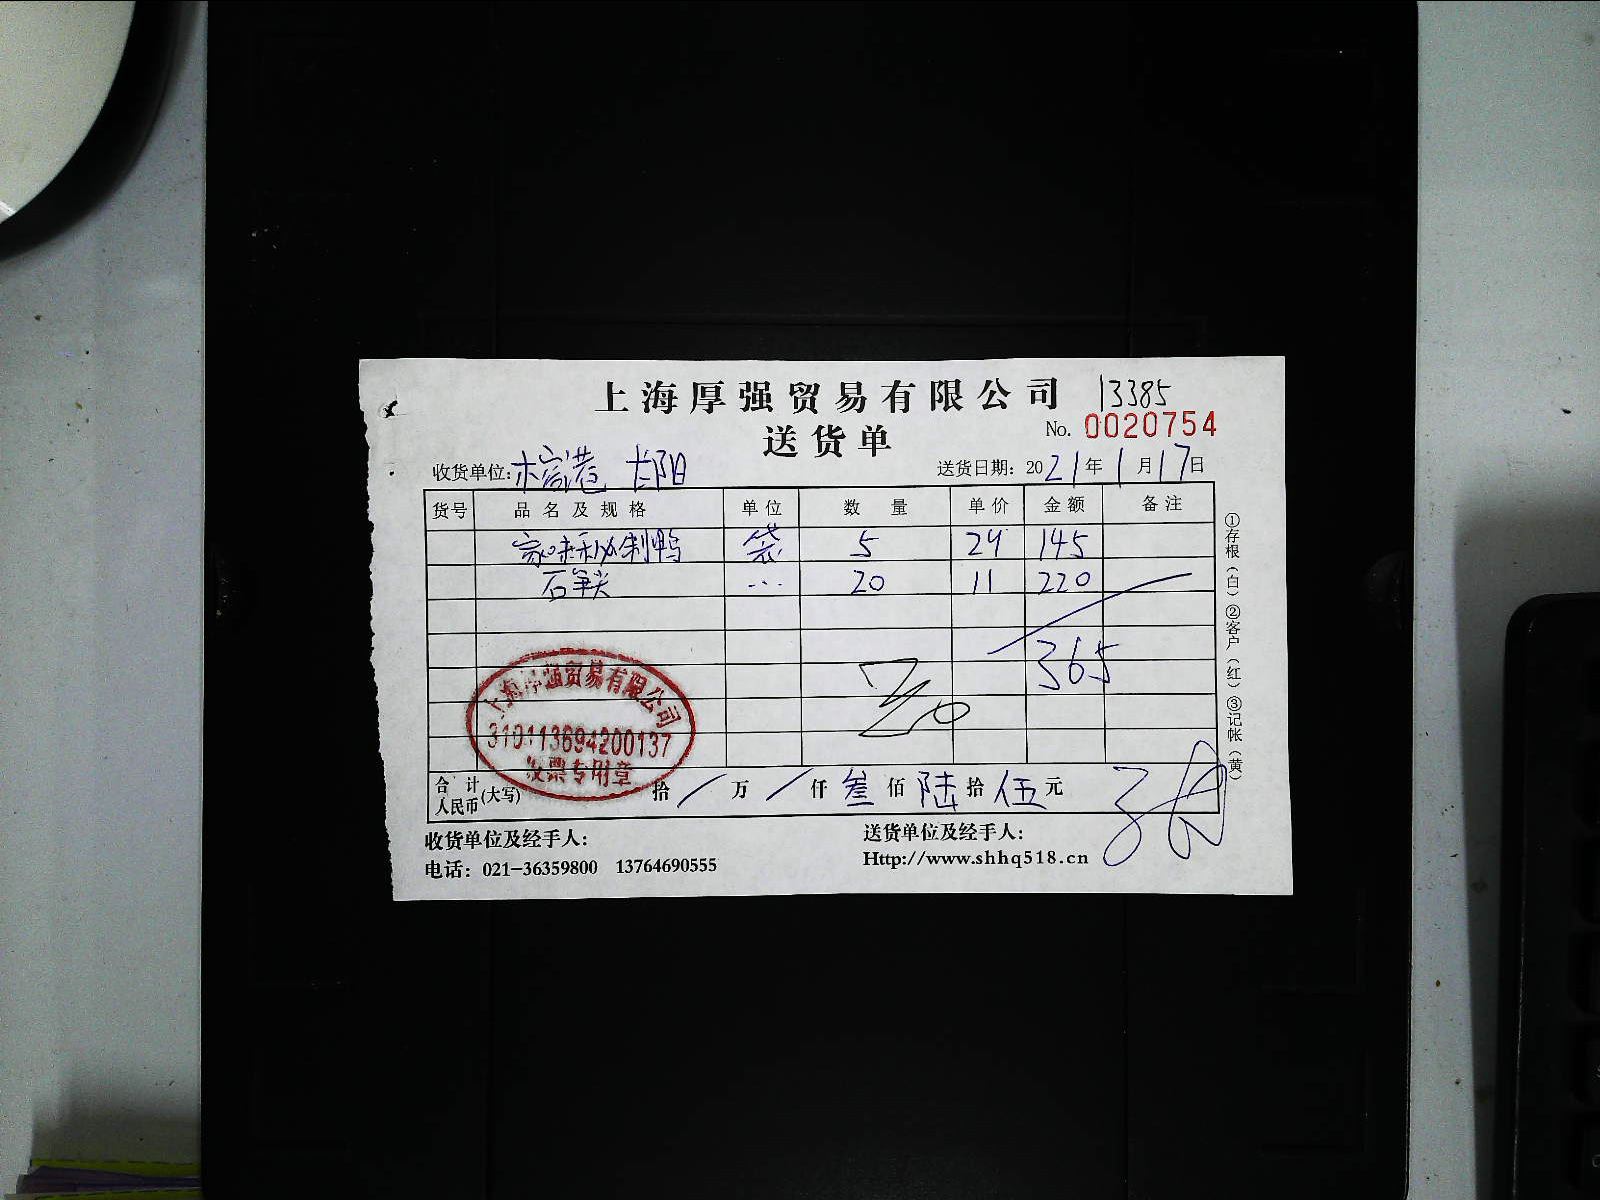 上海厚强贸易有限公司 13385
送货单 No. 0020754
收货单位: 木窑港 长阳 送货日期: 2021年1月17日
货号 品名及规格 单位 数量 单价 金额 备注
家味秘制鸭 袋 5 29 145
石笋尖 ... 20 11 220
365
上海厚强贸易有限公司
310113694200137
发票专用章
合计人民币(大写) 拾 / 万 / 仟 叁 佰 陆 拾 伍 元
收货单位及经手人: 送货单位及经手人:
电话: 021-36359800 13764690555 Http://www.shhq518.cn
①存根(白) ②客户(红) ③记帐(黄)